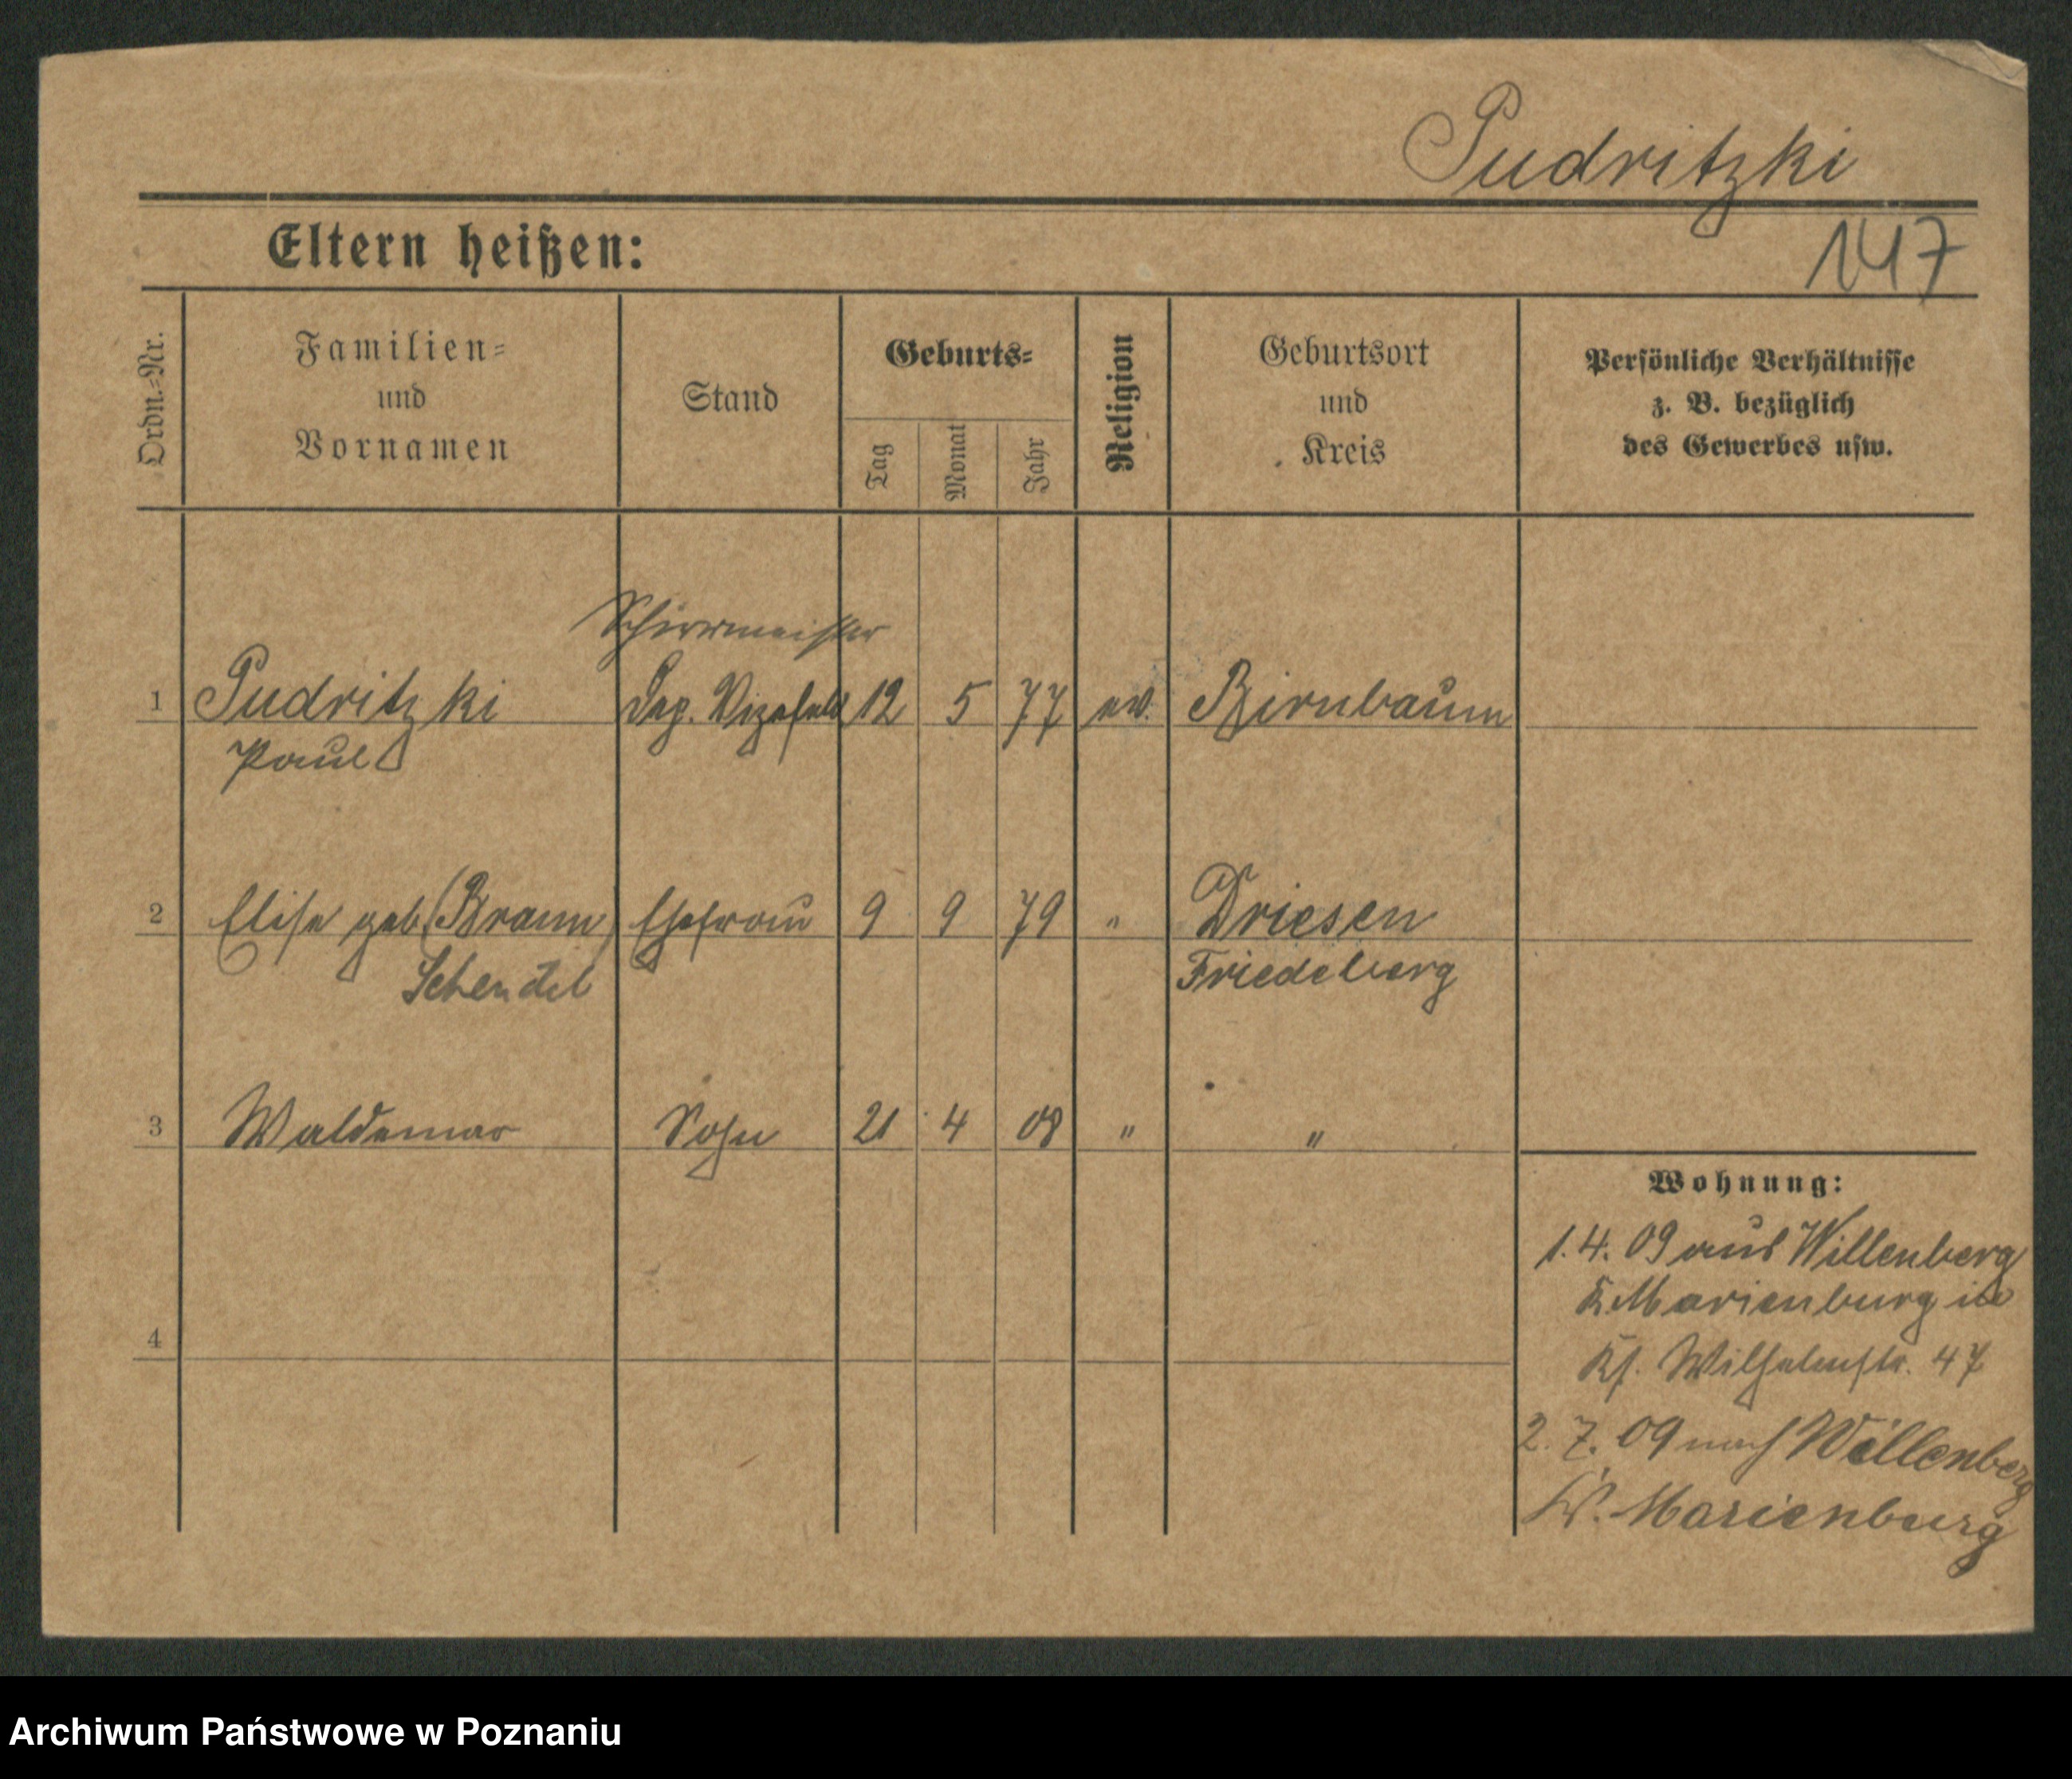 Pudritzki
Eltern heißen:
147
Ordn.=Nr.
Familien=
und
Vornamen
Stand
Geburts=
Tag
Monat
Jahr
Religion
Geburtsort
und
Kreis
Persönliche Verhältnisse
z. B. bezüglich
des Gewerbes usw.
Schirrmeister
1 Pudritzki Vizefeld 12 5 77 ev. Birnbaum
Paul
2 Elise geb. (Braun) Ehefrau 9 9 79 " Driesen
Schendel Friedeberg
3 Waldemar Sohn 21 4 08 " "
Wohnung:
1. 4. 09 aus Willenberg
K. Marienburg in
Wilhelmstr. 47
4
2. 7. 09 nach Willenberg
K. Marienburg
Archiwum Państwowe w Poznaniu